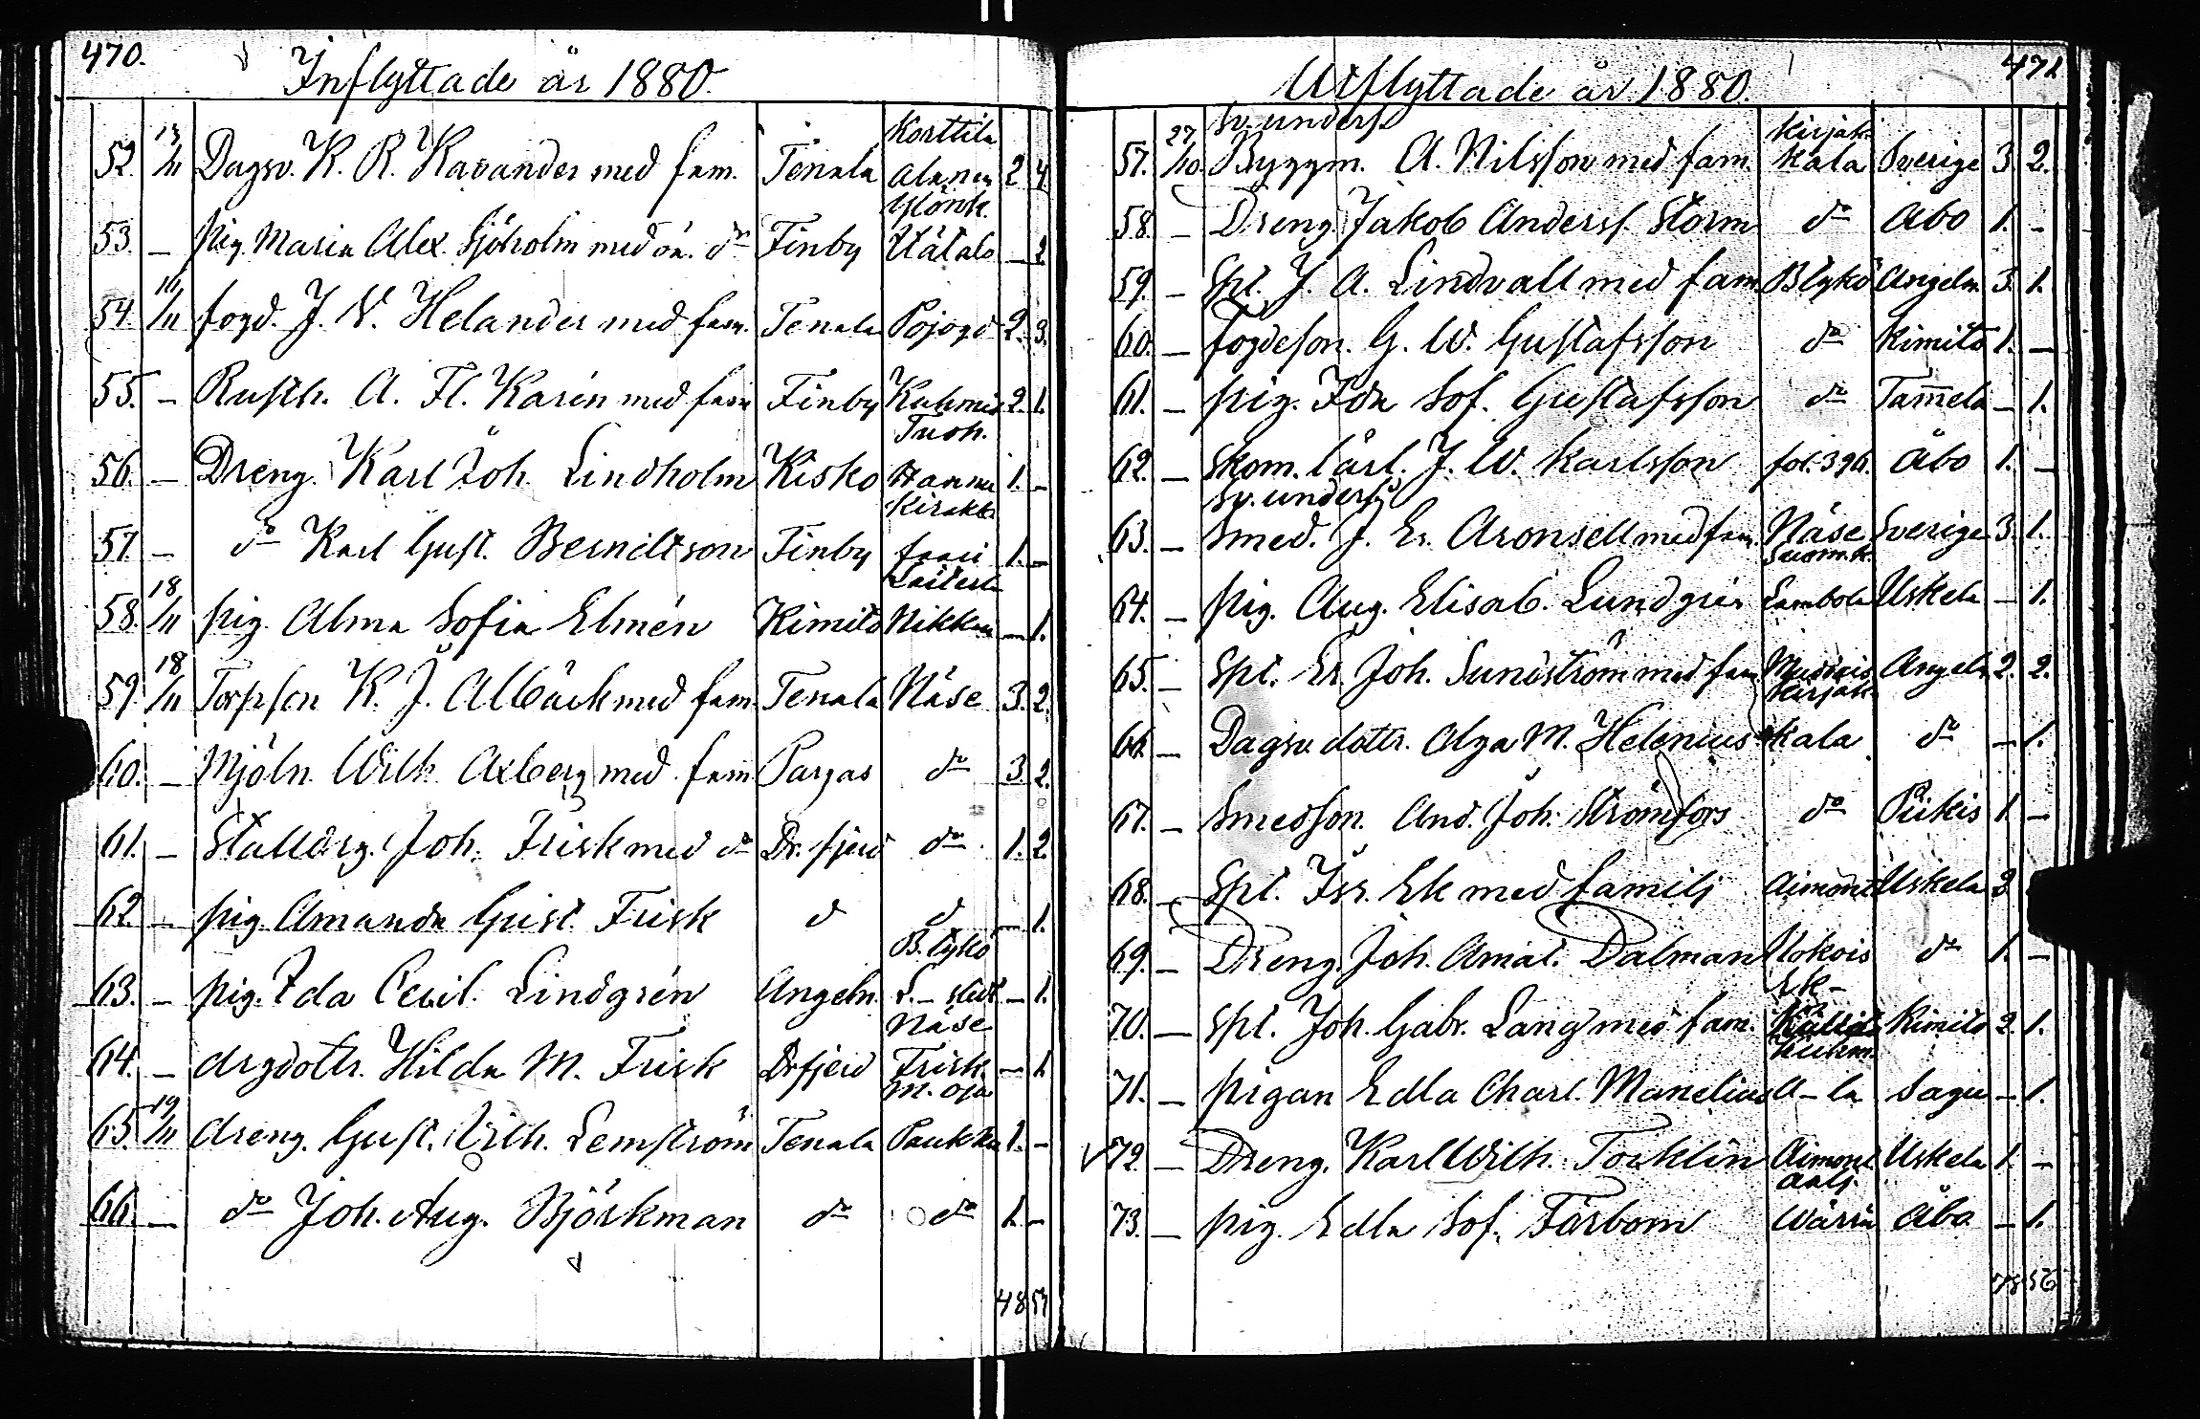 470.
Inflyttade år 1880.
Korttila
52. 13/11 Dagsv. K. R. Karander med fam. Tenala Alanen 2 4
53. — pig. Maria Alex. Sjöholm med oä. do Finby Ylönk. Utåtalo — 2
54. 16/11 fogd. J. V. Helander med fam. Tenala Pojogd 2. 3.
55. — Rusth. A. Fl. Karén med fam Finby Kuhmis 2. 1.
Tuoh.
56. — Dreng. Karl Joh. Lindholm Kisko Hannu 1. —
Kirakk.
57. — do Karl Gust. Berndtson Finby 1. —
58. 18/11 pig. Alma Sofia Elmén Kimito Nikku — 1.
59. 18/11 Torpson K. J. Albäck med fam. Tenala Näse 3. 2.
60. — Mjöln. Wilh. Axberg med fam Pargas do 3. 2.
61. — Stalldrg. Joh. Frisk med do Dr. fjerd do 1. 2.
62. — pig. Amanda Gust. Frisk d d — 1.
B. tykö
63. — pig. Ida Cecil. Lindgrén Angeln. — 1.
Näse
64. — drgdottr. Hilda M. Frisk Drfjerd Frisk. — 1
M. oja
65. 19/11 dreng. Gust. Wilh. Lemström Tenala Paukku 1. —
66. — do Joh. Aug. Björkman do do 1. —
48 51
471
Utflyttade år 1880.
Sv. unders. Kirjak
57. 27/10. Byggm. A. Nilsson med fam. kala Sverige 3. 2.
58. — Dreng. Jakob Anderss. Storm do Åbo 1. —
59. — Spt. J. A. Lindvall med fam. B.tykö Angeln 3. 1.
60. — fogdeson. G. W. Gustafsson do Kimito 1. —
61. — pig. Ida Sof. Gustafsson do Tam̄ela — 1.
62. — Skom. lärl. J. W. Karlsson fol. 396. Åbo 1. —
Sv. unders.
63. — Smed. J. Er. Aronsell med fam. Näse Sverige 3. 1.
Suomk.
64. — pig. Aug. Elisab. Lundgrén Lambola Uskela — 1.
65. — Spt. Er. Joh. Sundström med fam. Angeln 2. 2.
Kirjak
66. — Dagsv. dottr. Olga M. Helenius kala do — 1.
67. — Smedsson. And. Joh. Strömfors do Piikis 1. —
68. — Spt. Isr. Ek med familj Aimont Uskela 3
69. — Dreng. Joh. Amat. Dalman Uokois do 1. —
70. — Spt. Joh. Gabr. Lang med fam. Kimito 2. 1.
Kuhm.
71. — pigan Edla Charl. Manelius A-la Sagu — 1.
√ 72. — Dreng. Karl Wilh. Torklin Aimont Uskela 1. —
73. — pig. Edla Sof. Törbom Wärri Åbo — 1.
78 56